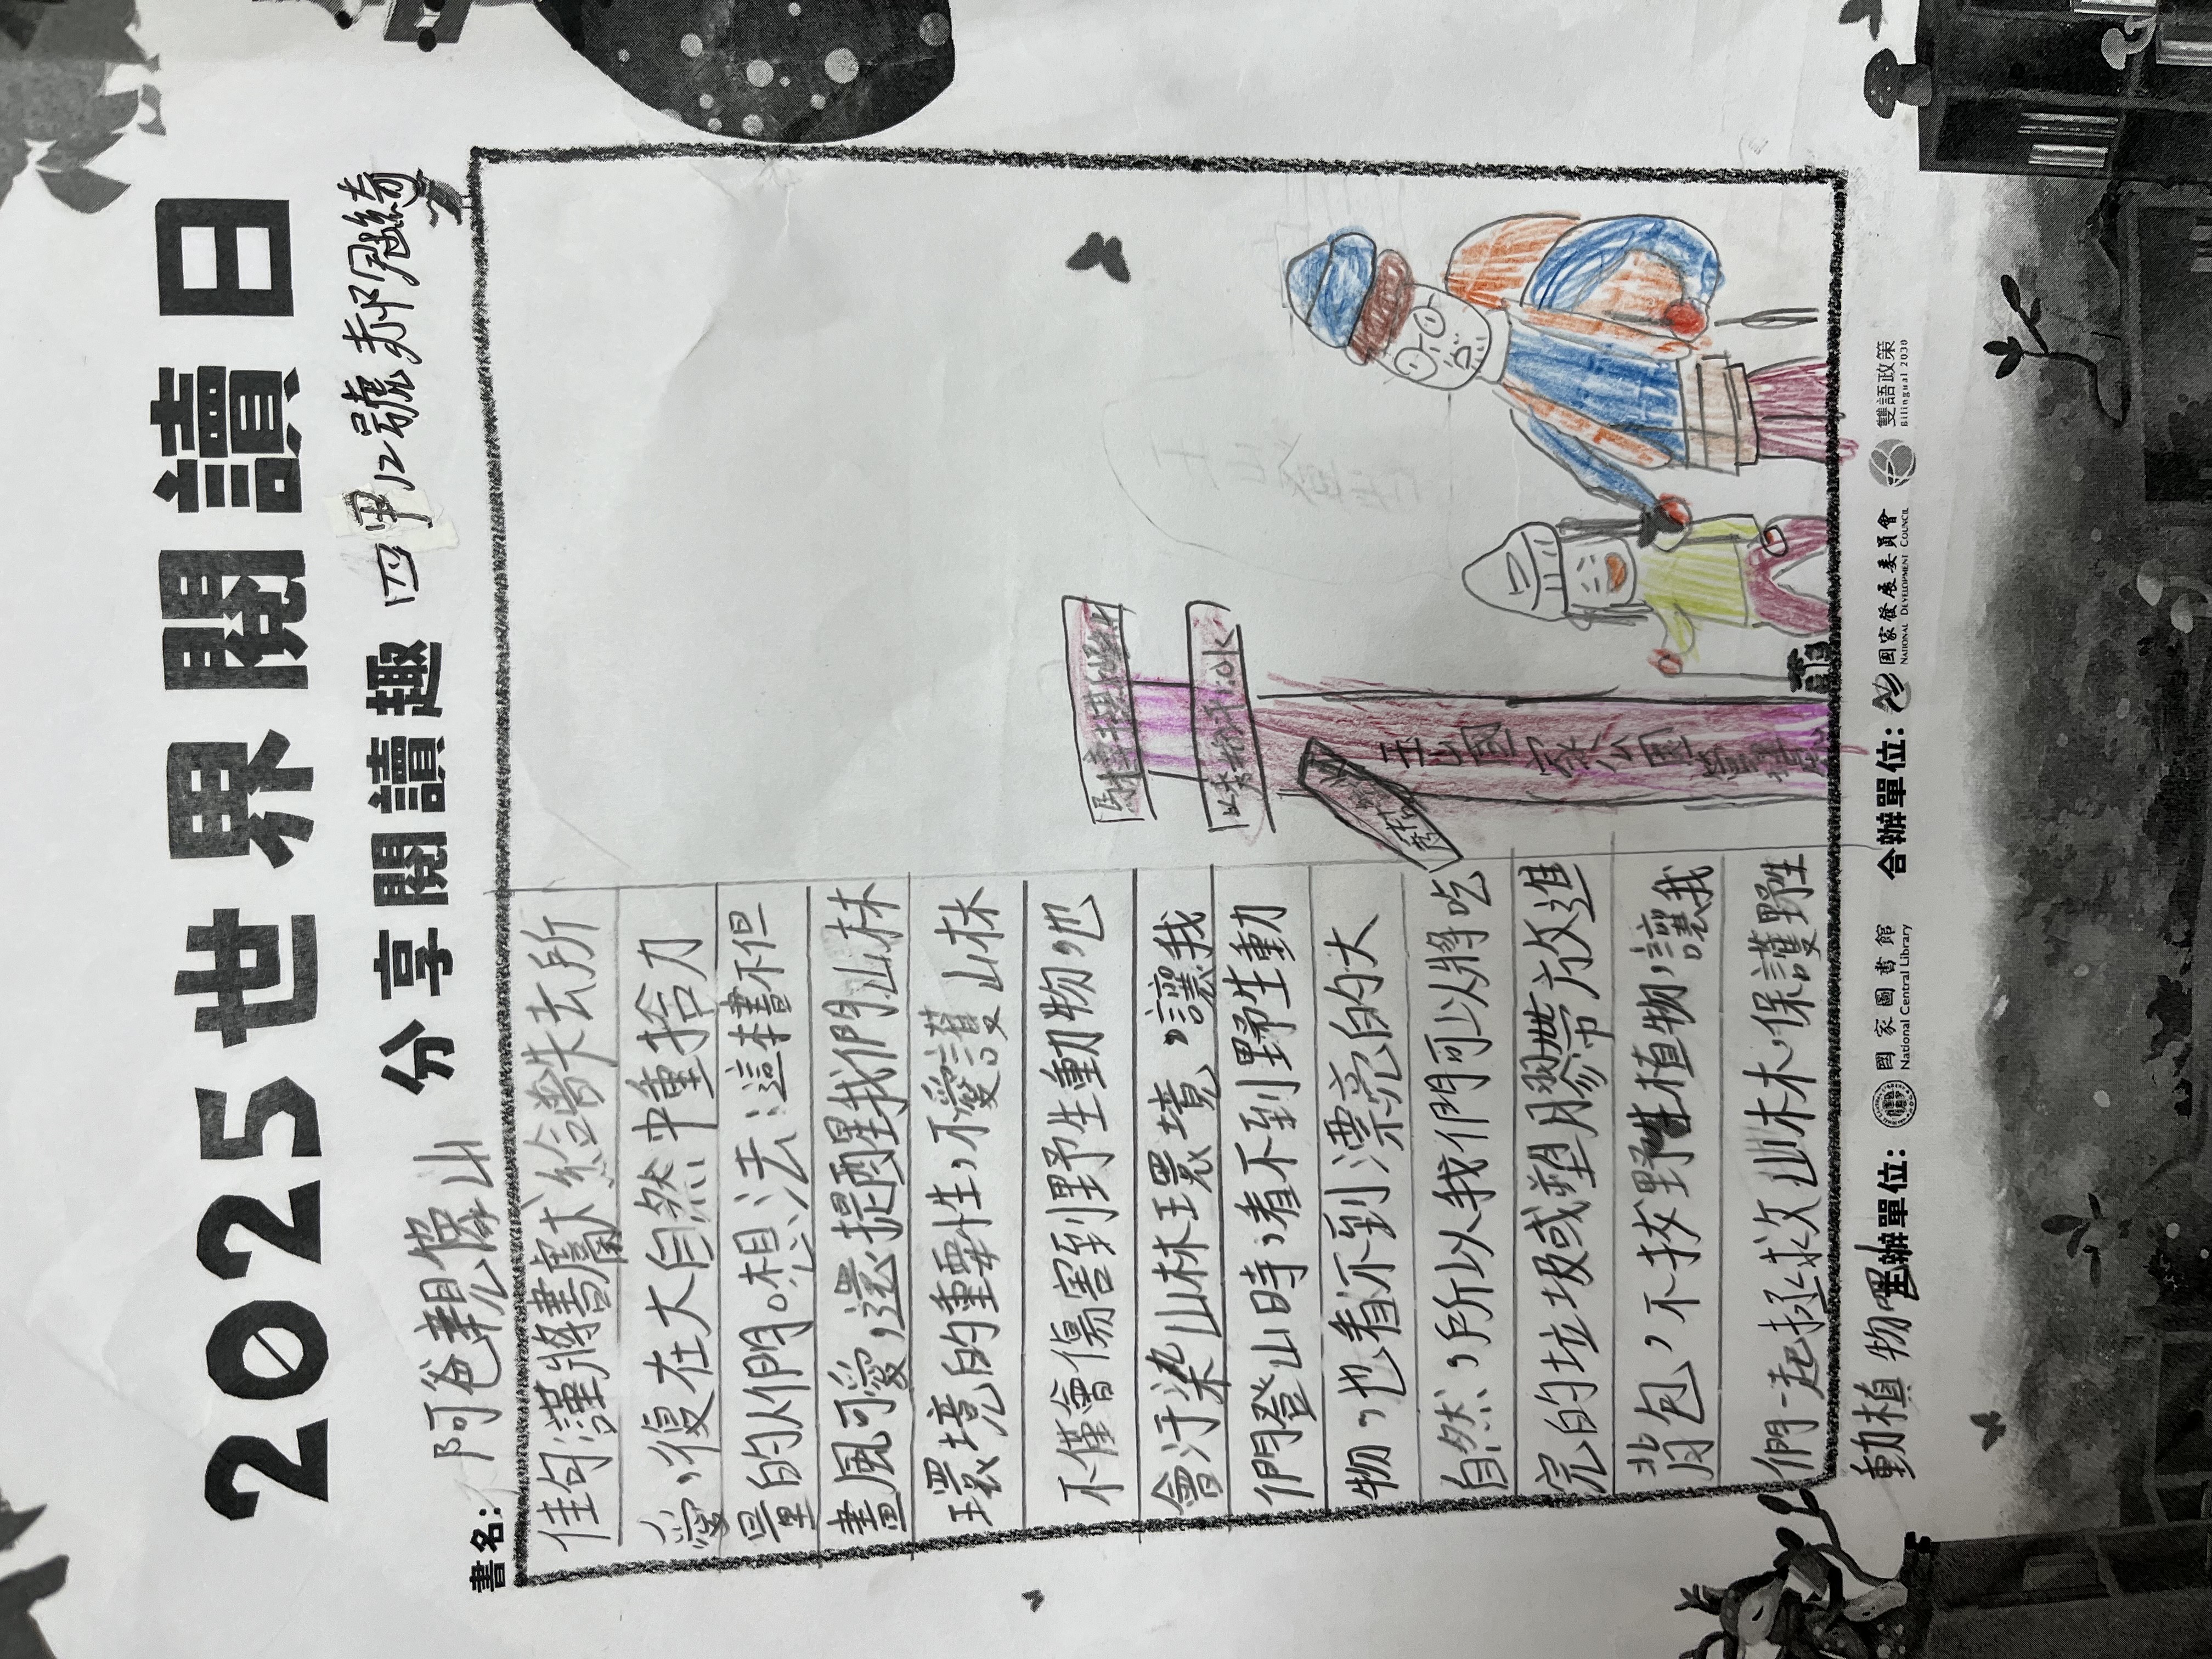 2025世界閱讀日
分享閱讀趣 四甲12號郝冠綺
書名: 阿爸親像山
佳句:謹將書獻給曾失去所
愛,復在大自然中重拾力
量的人們。想法:這本書不但
畫風可愛,還提醒我們山林
環境的重要性,不愛護山林
不僅會傷害到野生動物,也
會汙染山林環境,讓我
們登山時,看不到野生動
物,也看不到漂亮的大
自然,所以我們可以將吃
完的垃圾或塑膠帶放進
背包,不拔野生植物,讓我
們一起拯救山林,保護野生
動植物吧!
玉山國家公園
主辦單位:
國家圖書館
National Central Library
合辦單位:
國家發展委員會
NATIONAL DEVELOPMENT COUNCIL
雙語政策
Bilingual 2030